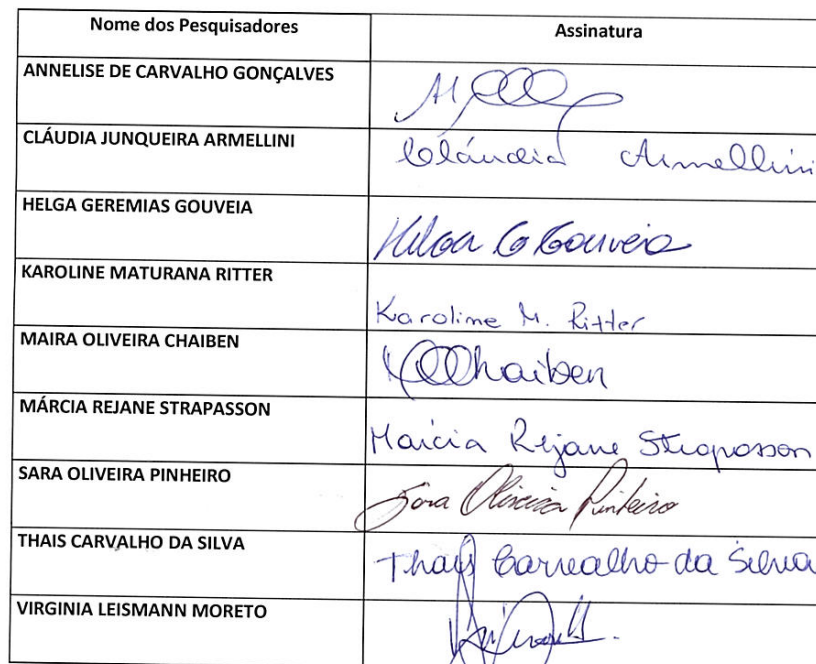 Nome dos Pesquisadores Assinatura
ANNELISE DE CARVALHO GONÇALVES
CLÁUDIA JUNQUEIRA ARMELLINI Cláudia Armellini
HELGA GEREMIAS GOUVEIA Helga G Gouveia
KAROLINE MATURANA RITTER Karoline M. Ritter
MAIRA OLIVEIRA CHAIBEN Chaiben
MÁRCIA REJANE STRAPASSON Márcia Rejane Strapasson
SARA OLIVEIRA PINHEIRO Sara Oliveira Pinheiro
THAIS CARVALHO DA SILVA Thais Carvalho da Silva
VIRGINIA LEISMANN MORETO